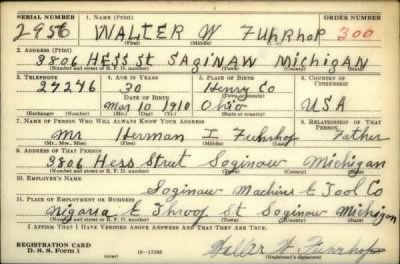 SERIAL NUMBER 1. NAME (Print) ORDER NUMBER
2956 WALTER W Fuhrhop 300
(First) (Middle) (Last)
2. ADDRESS (Print)
3806 HESS St SAGINAW MICHIGAN
(Number and street or R. F. D. number) (Town) (County) (State)
3. TELEPHONE 4. AGE IN YEARS 5. PLACE OF BIRTH 6. COUNTRY OF CITIZENSHIP
27276 30 Henry Co
DATE OF BIRTH (Town or county)
Mar 10 1910 Ohio USA
(Exchange) (Number) (Mo.) (Day) (Yr.) (State or country)
7. NAME OF PERSON WHO WILL ALWAYS KNOW YOUR ADDRESS 8. RELATIONSHIP OF THAT PERSON
Mr Herman I Fuhrhop Father
(Mr., Mrs., Miss) (First) (Middle) (Last)
9. ADDRESS OF THAT PERSON
3806 Hess Street Saginaw Michigan
(Number and street or R. F. D. number) (Town) (County) (State)
10. EMPLOYER'S NAME
Saginaw Machine & Tool Co
11. PLACE OF EMPLOYMENT OR BUSINESS
Nigaria & Throop St Saginaw Michigan
(Number and street or R. F. D. number) (Town) (County) (State)
I AFFIRM THAT I HAVE VERIFIED ABOVE ANSWERS AND THAT THEY ARE TRUE.
REGISTRATION CARD
D. S. S. Form 1 (over) Walter W. Fuhrhop
(Registrant's signature)